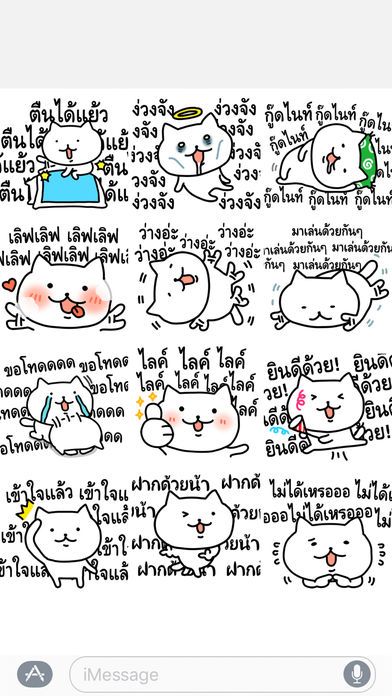 ตื่นได้แย้ว
ตื่นได้แย้ว
ตื่นได้แย้ว
ง่วงจัง ง่วงจัง
ง่วงจัง ง่วงจัง
ง่วงจัง ง่วงจัง
ง่วงจัง ง่วงจัง
กู๊ดไนท์ กู๊ดไนท์
กู๊ดไนท์
กู๊ดไนท์ กู๊ดไนท์ กู๊ดไนท์
เลิฟเลิฟ เลิฟเลิฟ
เลิฟเลิฟ เลิฟเลิฟ
ว่างอ่ะ ว่างอ่ะ
ว่างอ่ะ ว่างอ่ะ
มาเล่นด้วยกันๆ
มาเล่นด้วยกันๆ มาเล่นด้วยกันๆ
มาเล่นด้วยกันๆ
ขอโทดดดด ขอโทดดดด
ขอโทดดดด
ไลค์ ไลค์ ไลค์
ไลค์ ไลค์ ไลค์
ยินดีด้วย!
ยินดีด้วย!
เข้าใจแล้ว เข้าใจแล้ว
เข้าใจแล้ว
ฝากด้วยน้า
ฝากด้วยน้า
ไม่ได้เหรอออ
iMessage